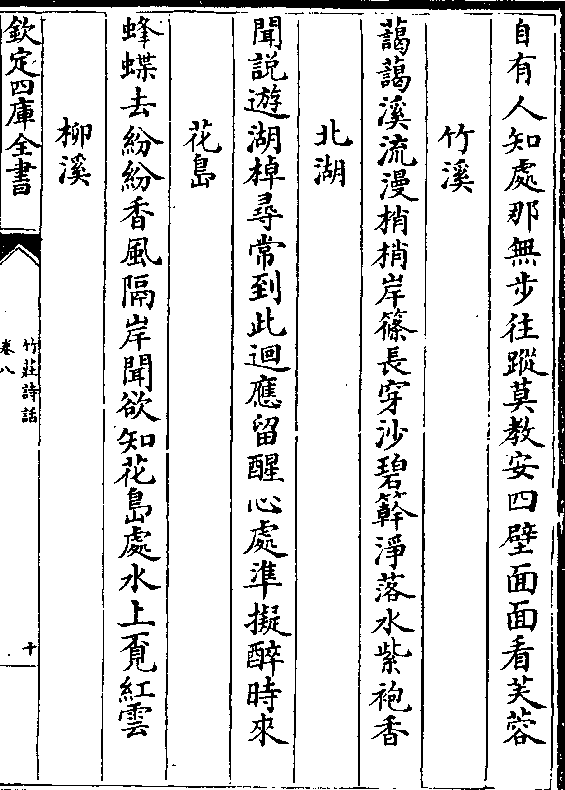 自有人知處那無步往蹤莫教安四壁面面看芙蓉
竹溪
藹藹溪流漫梢梢岸篠長穿沙碧簳淨落水紫袍香
北湖
聞說遊湖棹尋常到此迴應留醒心處準擬醉時來
花島
蜂蝶去紛紛香風隔岸聞欲知花島處水上覔紅雲
柳溪
欽定四庫全書
竹莊詩話
卷八
十